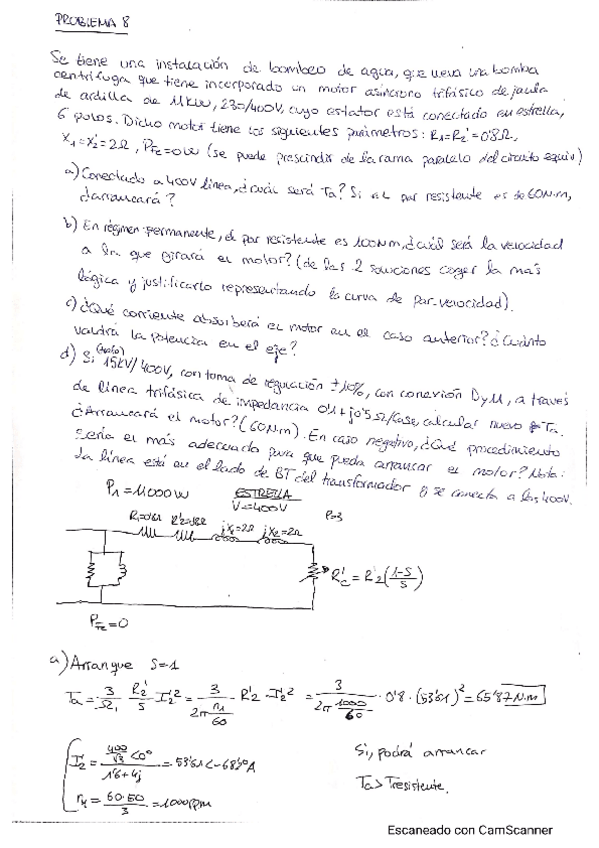 PROBLEMA 8
Se tiene una instalación de bombeo de agua, que lleva una bomba
centrífuga que tiene incorporado un motor asíncrono trifásico de jaula
de ardilla de 11kW, 230/400V, cuyo estator está conectado en estrella,
6 polos. Dicho motor tiene los siguientes parámetros: R1=R2'=0'8Ω,
X1=X2'=2Ω, PFe=0W (se puede prescindir de la rama paralelo del circuito equiv)
a) Conectado a 400V línea, ¿cuál será Ta? Si el par resistente es de 60N·m,
¿arrancará?
b) En régimen permanente, el par resistente es 100N·m, ¿cuál será la velocidad
a la que girará el motor? (de las 2 soluciones coger la más
lógica y justificarlo representando la curva de par-velocidad).
c) ¿Qué corriente absorberá el motor en el caso anterior? ¿Cuánto
valdrá la potencia en el eje?
d) Si (trafo) 15kV/400V, con toma de regulación ±10%, con conexión Dy11, a través
de línea trifásica de impedancia 0'1+j0'5 Ω/fase, calcular nuevo Ta.
¿Arrancará el motor? (60N·m). En caso negativo, ¿Qué procedimiento
sería el más adecuado para que pueda arrancar el motor? Nota:
La línea está en el lado de BT del transformador y se conecta a los 400V.
P1=11000W
ESTRELLA
V=400V
R1=0'8Ω R2'=0'8Ω jX1=2Ω jX2=2Ω
P=3
R'c = R'2(1-S/S)
PFe=0
a) Arranque S=1
Ta = 3/Ω1 · R2'/S · I2'² = 3/(2π n1/60) · R'2 · I2'² = 3/(2π 1000/60) · 0'8 · (53'61)² = 65'87 N·m
I2' = (400/√3 <0°)/(1'6+4j) = 53'61<-68'0A
n1 = 60·50/3 = 1000rpm
Si, podrá arrancar
Ta>Tresistente.
Escaneado con CamScanner